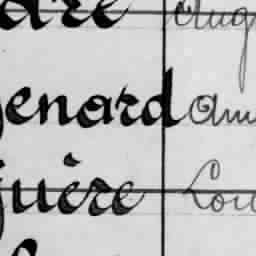 dre Aug
enard Am
uère Lou